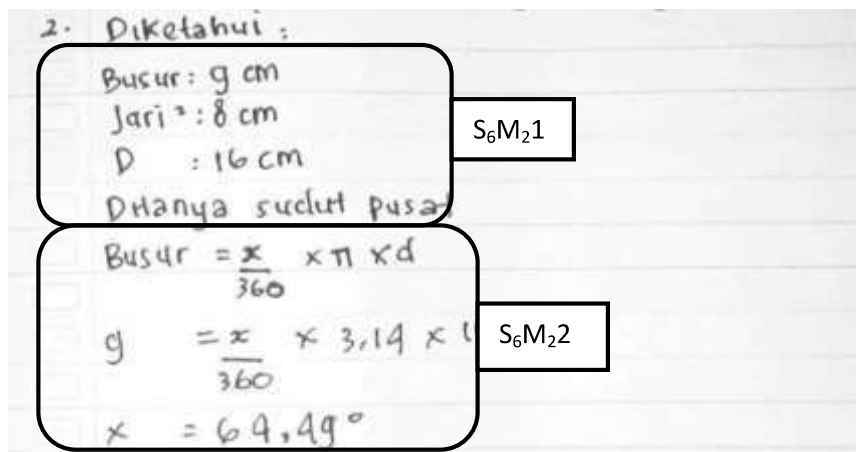 2. Diketahui :
Busur : 9 cm
Jari² : 8 cm
D : 16 cm
Ditanya sudut pusat
S₆M₂1
Busur = x/360 × π × d
9 = x/360 × 3,14 × 1
S₆M₂2
x = 64,49°